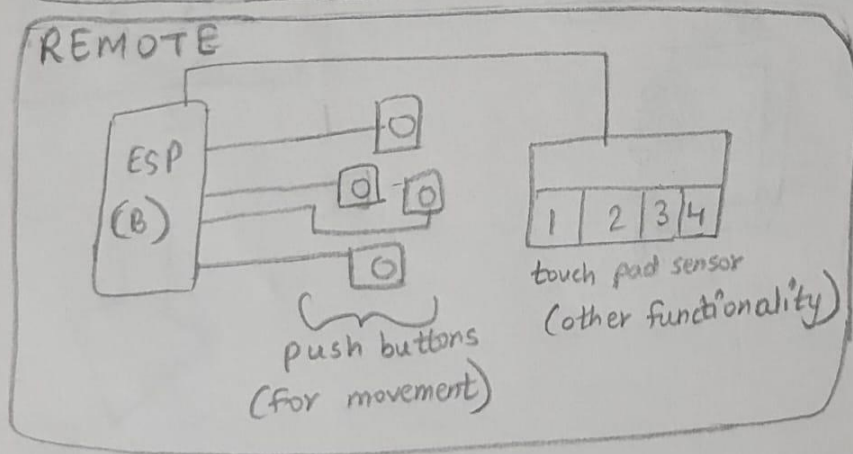 REMOTE
ESP
(B)
1 2 3 4
touch pad sensor
(other functionality)
push buttons
(for movement)